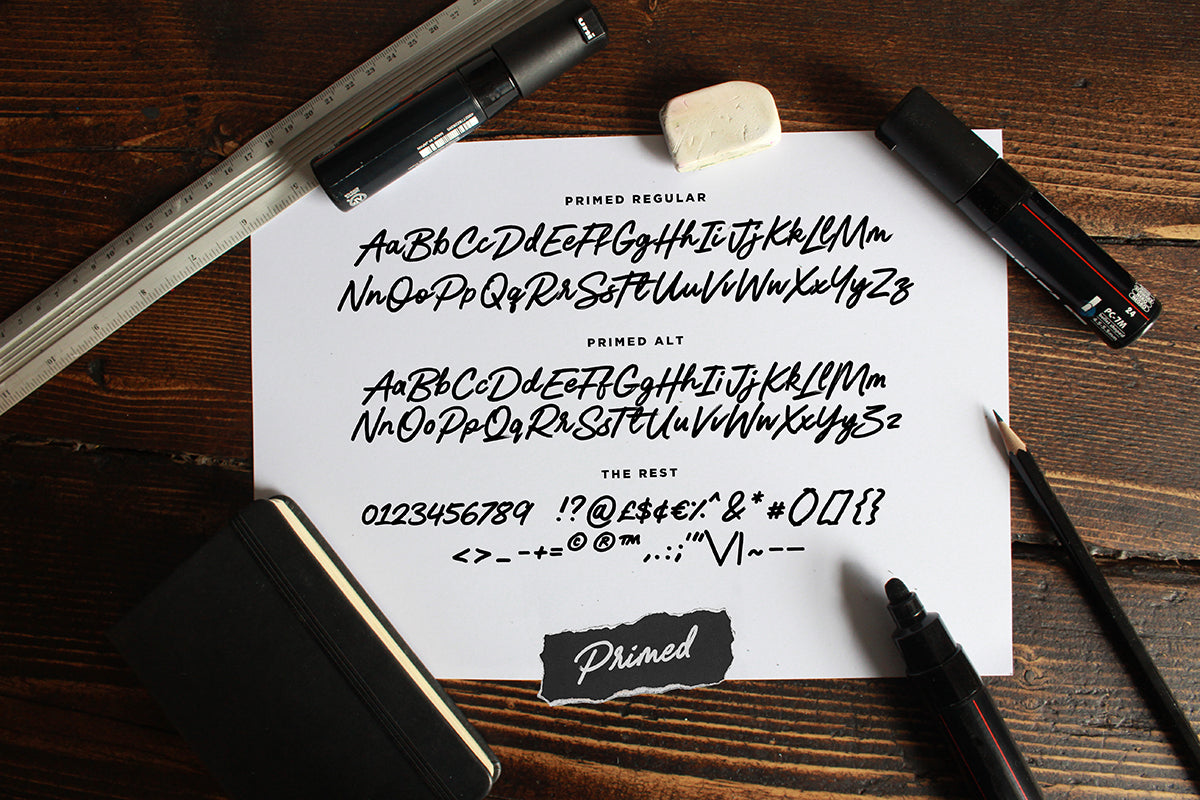 uni
PRIMED REGULAR
AaBbCcDdEeFfGgHhIiJjKkLlMm
NnOoPpQqRrSsTtUuVvWwXxYyZz
PRIMED ALT
AaBbCcDdEeFfGgHhIiJjKkLlMm
NnOoPpQqRrSsTtUuVvWwXxYyZz
THE REST
0123456789 !?@£$¢€%^&*#()[]{}
<>_-+=©®™,.:;'"\/|~--
Primed
24
PC-7M